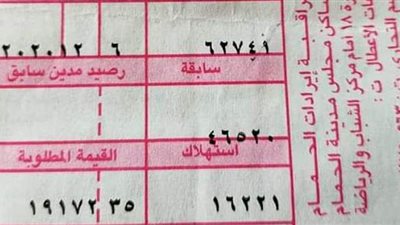 ٦٢٧٤١
٢٠٢٠١٢ ٦
سابقة
رصيد مدين سابق
٤٦٥٢٠
استهلاك
القيمة المطلوبة
١٦٢٢١
١٩١٧٢ ٣٥
مراقبة إيرادات الحمام
مساكن مجلس مدينة الحمام
١٨ أمام مركز الشباب والرياضة
الأعمال ت :
التجارى ت :